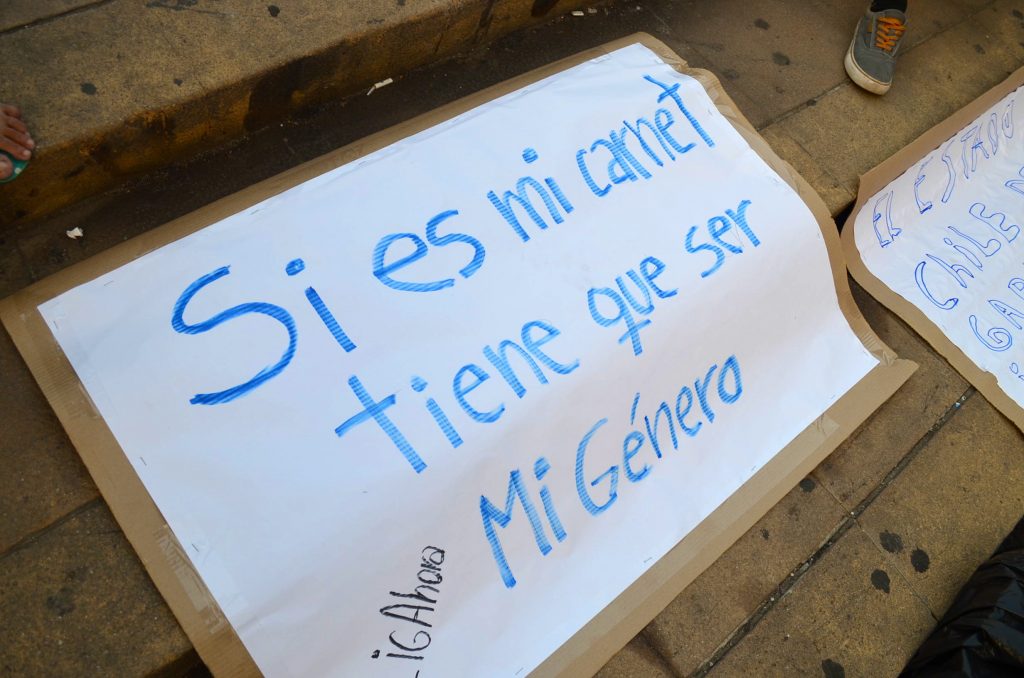 Si es mi carnet
tiene que ser
Mi Género
-IGAhora
El ESTADO
ChilE